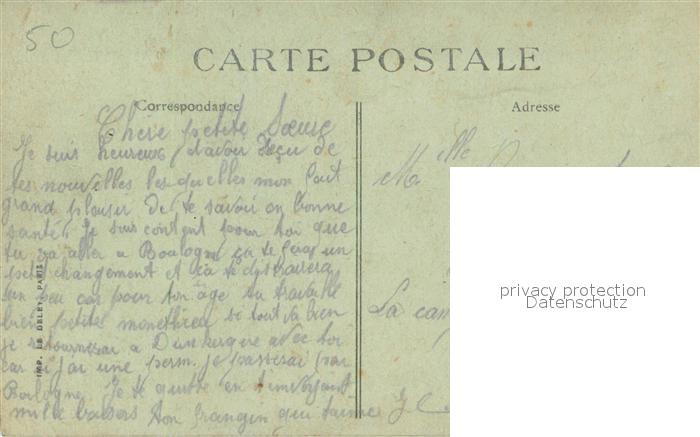 50
CARTE POSTALE
Correspondance
Adresse
Chère petite Sœure
Je suis heureux d'avoir reçu de
tes nouvelles lesquelles mon fait
grand plaisir de te savoir en bonne
santé. Je suis content pour toi que
tu va aller a Boulogne ça te feras un
petit changement et ça te distraiera
un peu car pour ton âge tu travaille
bien petite si tout va bien
je retournerai a Dunkerque avec toi
car si j'ai une perm. je passerai par
Boulogne. Je te quitte en t'envoyant
mille baisers ton frangin qui t'aime
Mlle
La
privacy protection
Datenschutz
IMP. LE DELEY, PARIS